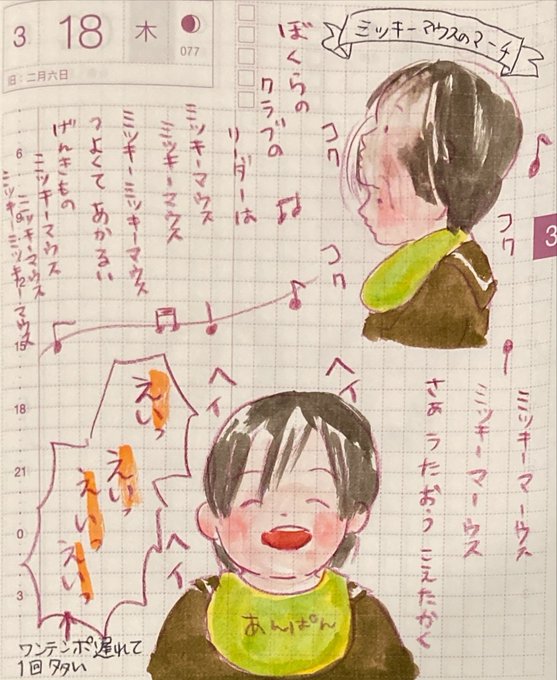 3 18 木
077
旧：二月六日
ミッキーマウスのマーチ
ぼくらの
クラブの
リーダーは
ミッキーマウス
ミッキーマウス
ミッキーミッキーマウス
つよくて あかるい
げんきもの
ミッキーマウス
ミッキーマウス
ミッキーミッキーマウス
コク
コク
コク
3
ヘイ
ヘイ
ヘイ
ミッキーマーウス
ミッキーマーウス
さあ うたおう こえたかく
えいっ
えいっ
えいっ
えいっ
ワンテンポ遅れて
1回多い
あんぱん
6
15
18
21
0
3